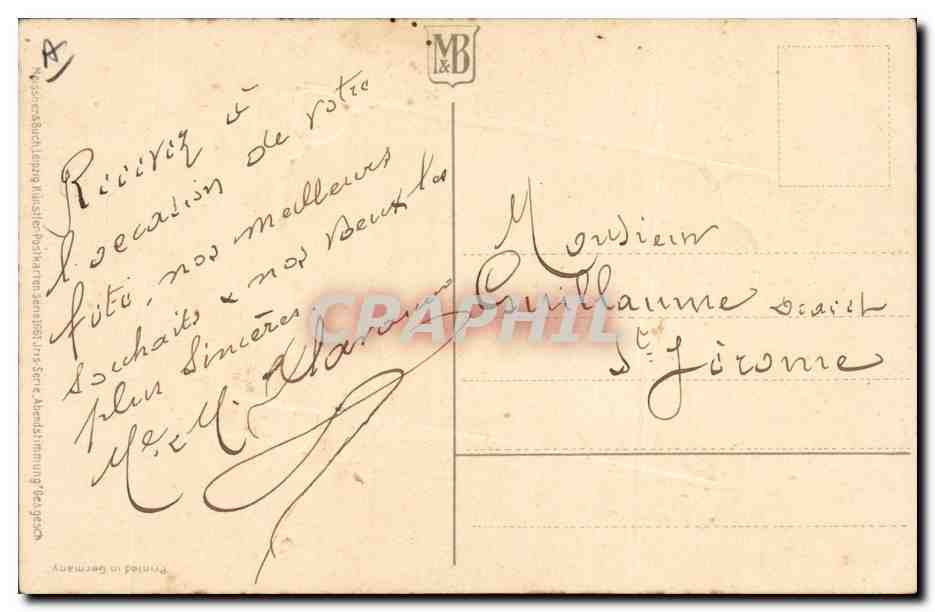 A
M&B
Recevez à
l'occasion de votre
fête, nos meilleurs
souhaits & nos voeux les
plus sincères
Me & M.
Monsieur
Guillaume
St. Jérome
Meissner & Buch, Leipzig, Künstler-Postkarten Serie 1961 Iris-Serie „Abendstimmung" Ges.gesch.
Printed in Germany
CPAPHIL